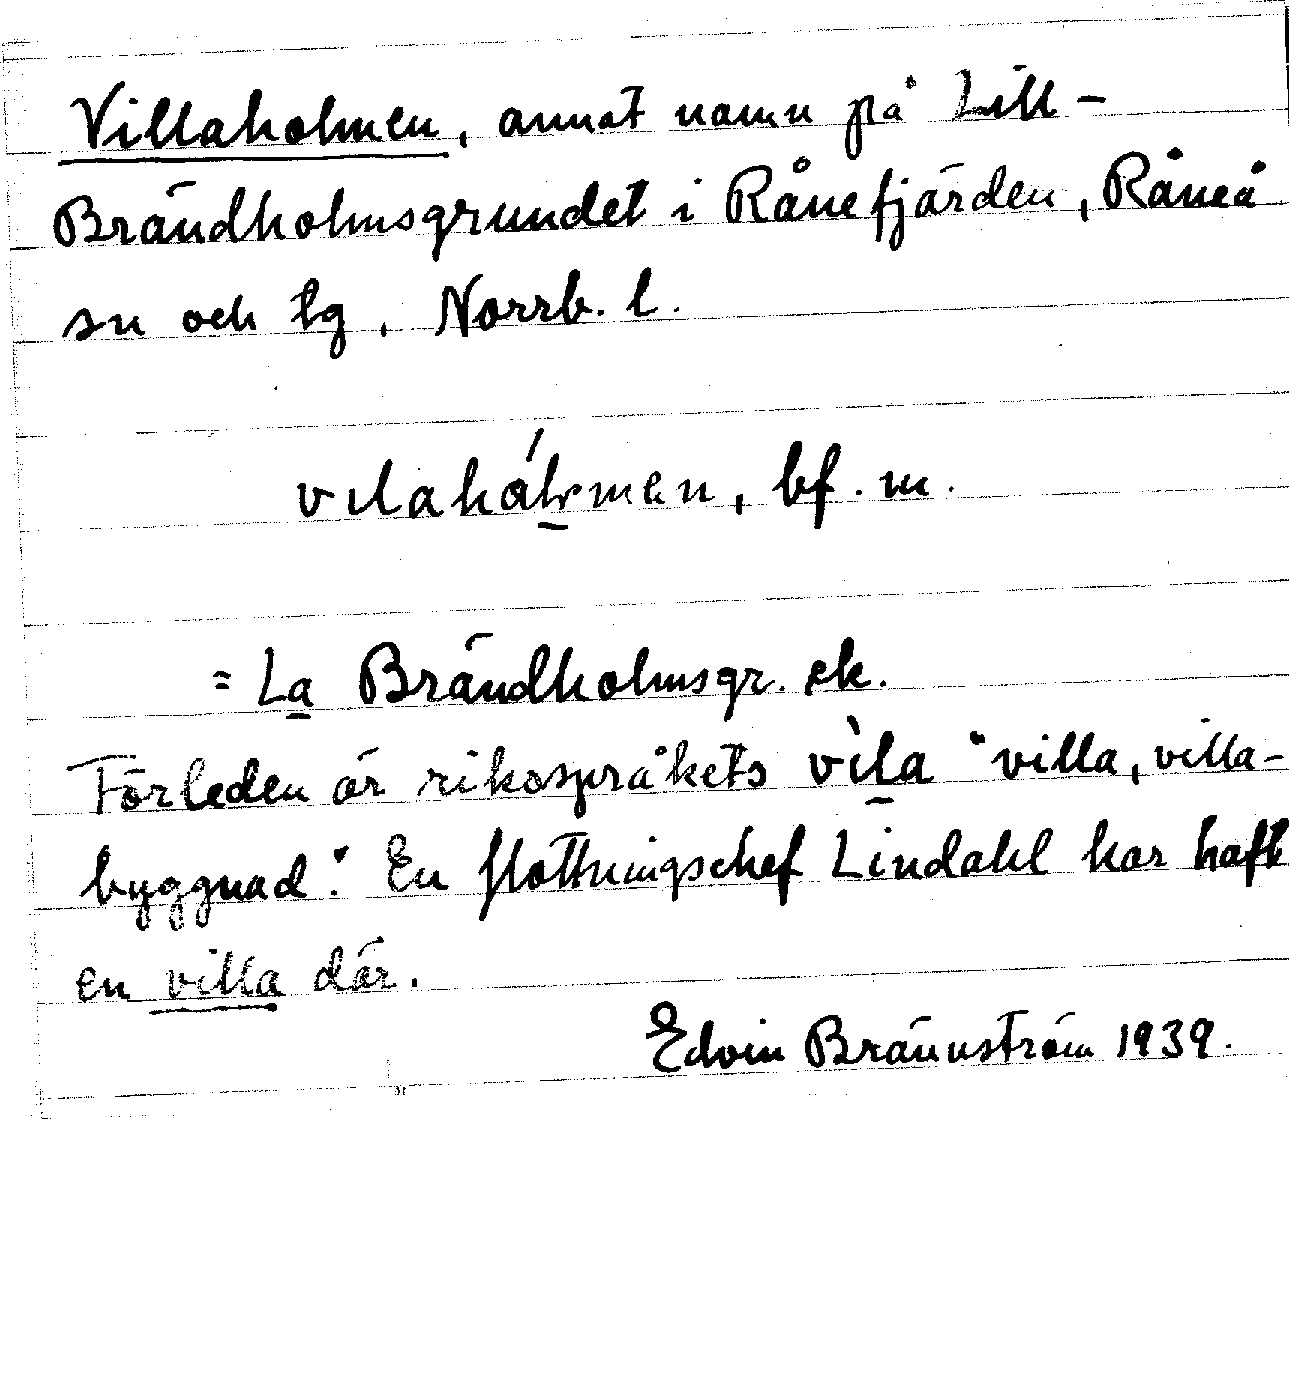 Villaholmen, annat namn på Lill-
Brändholmsgrundet i Rånefjärden, Råneå
sn och tg, Norrb. l.
vιlahólmen, bf. m.
= La Brändholmsgr. ek.
Förleden är riksspråkets vìla "villa, villa-
byggnad". En flottningschef Lindahl har haft
en villa där.
Edvin Brännström 1939.